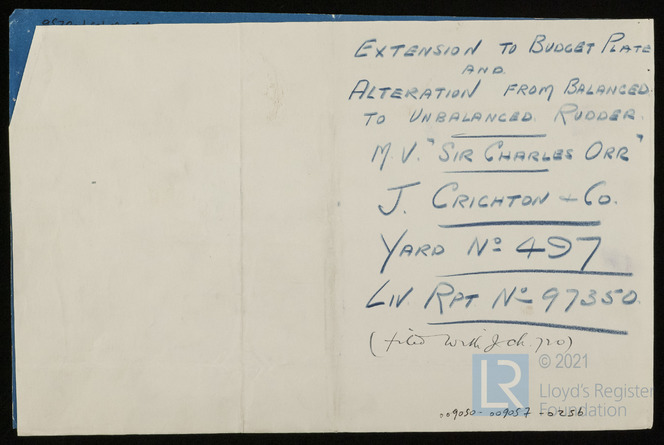 EXTENSION TO BUDGET PLATE
AND
ALTERATION FROM BALANCED
TO UNBALANCED RUDDER.
M.V. "SIR CHARLES ORR"
J. CRICHTON & Co.
YARD No 497
LIV. RPT No 97350
(filed with
LR
© 2021
Lloyd's Register
Foundation
009050-009057-0256